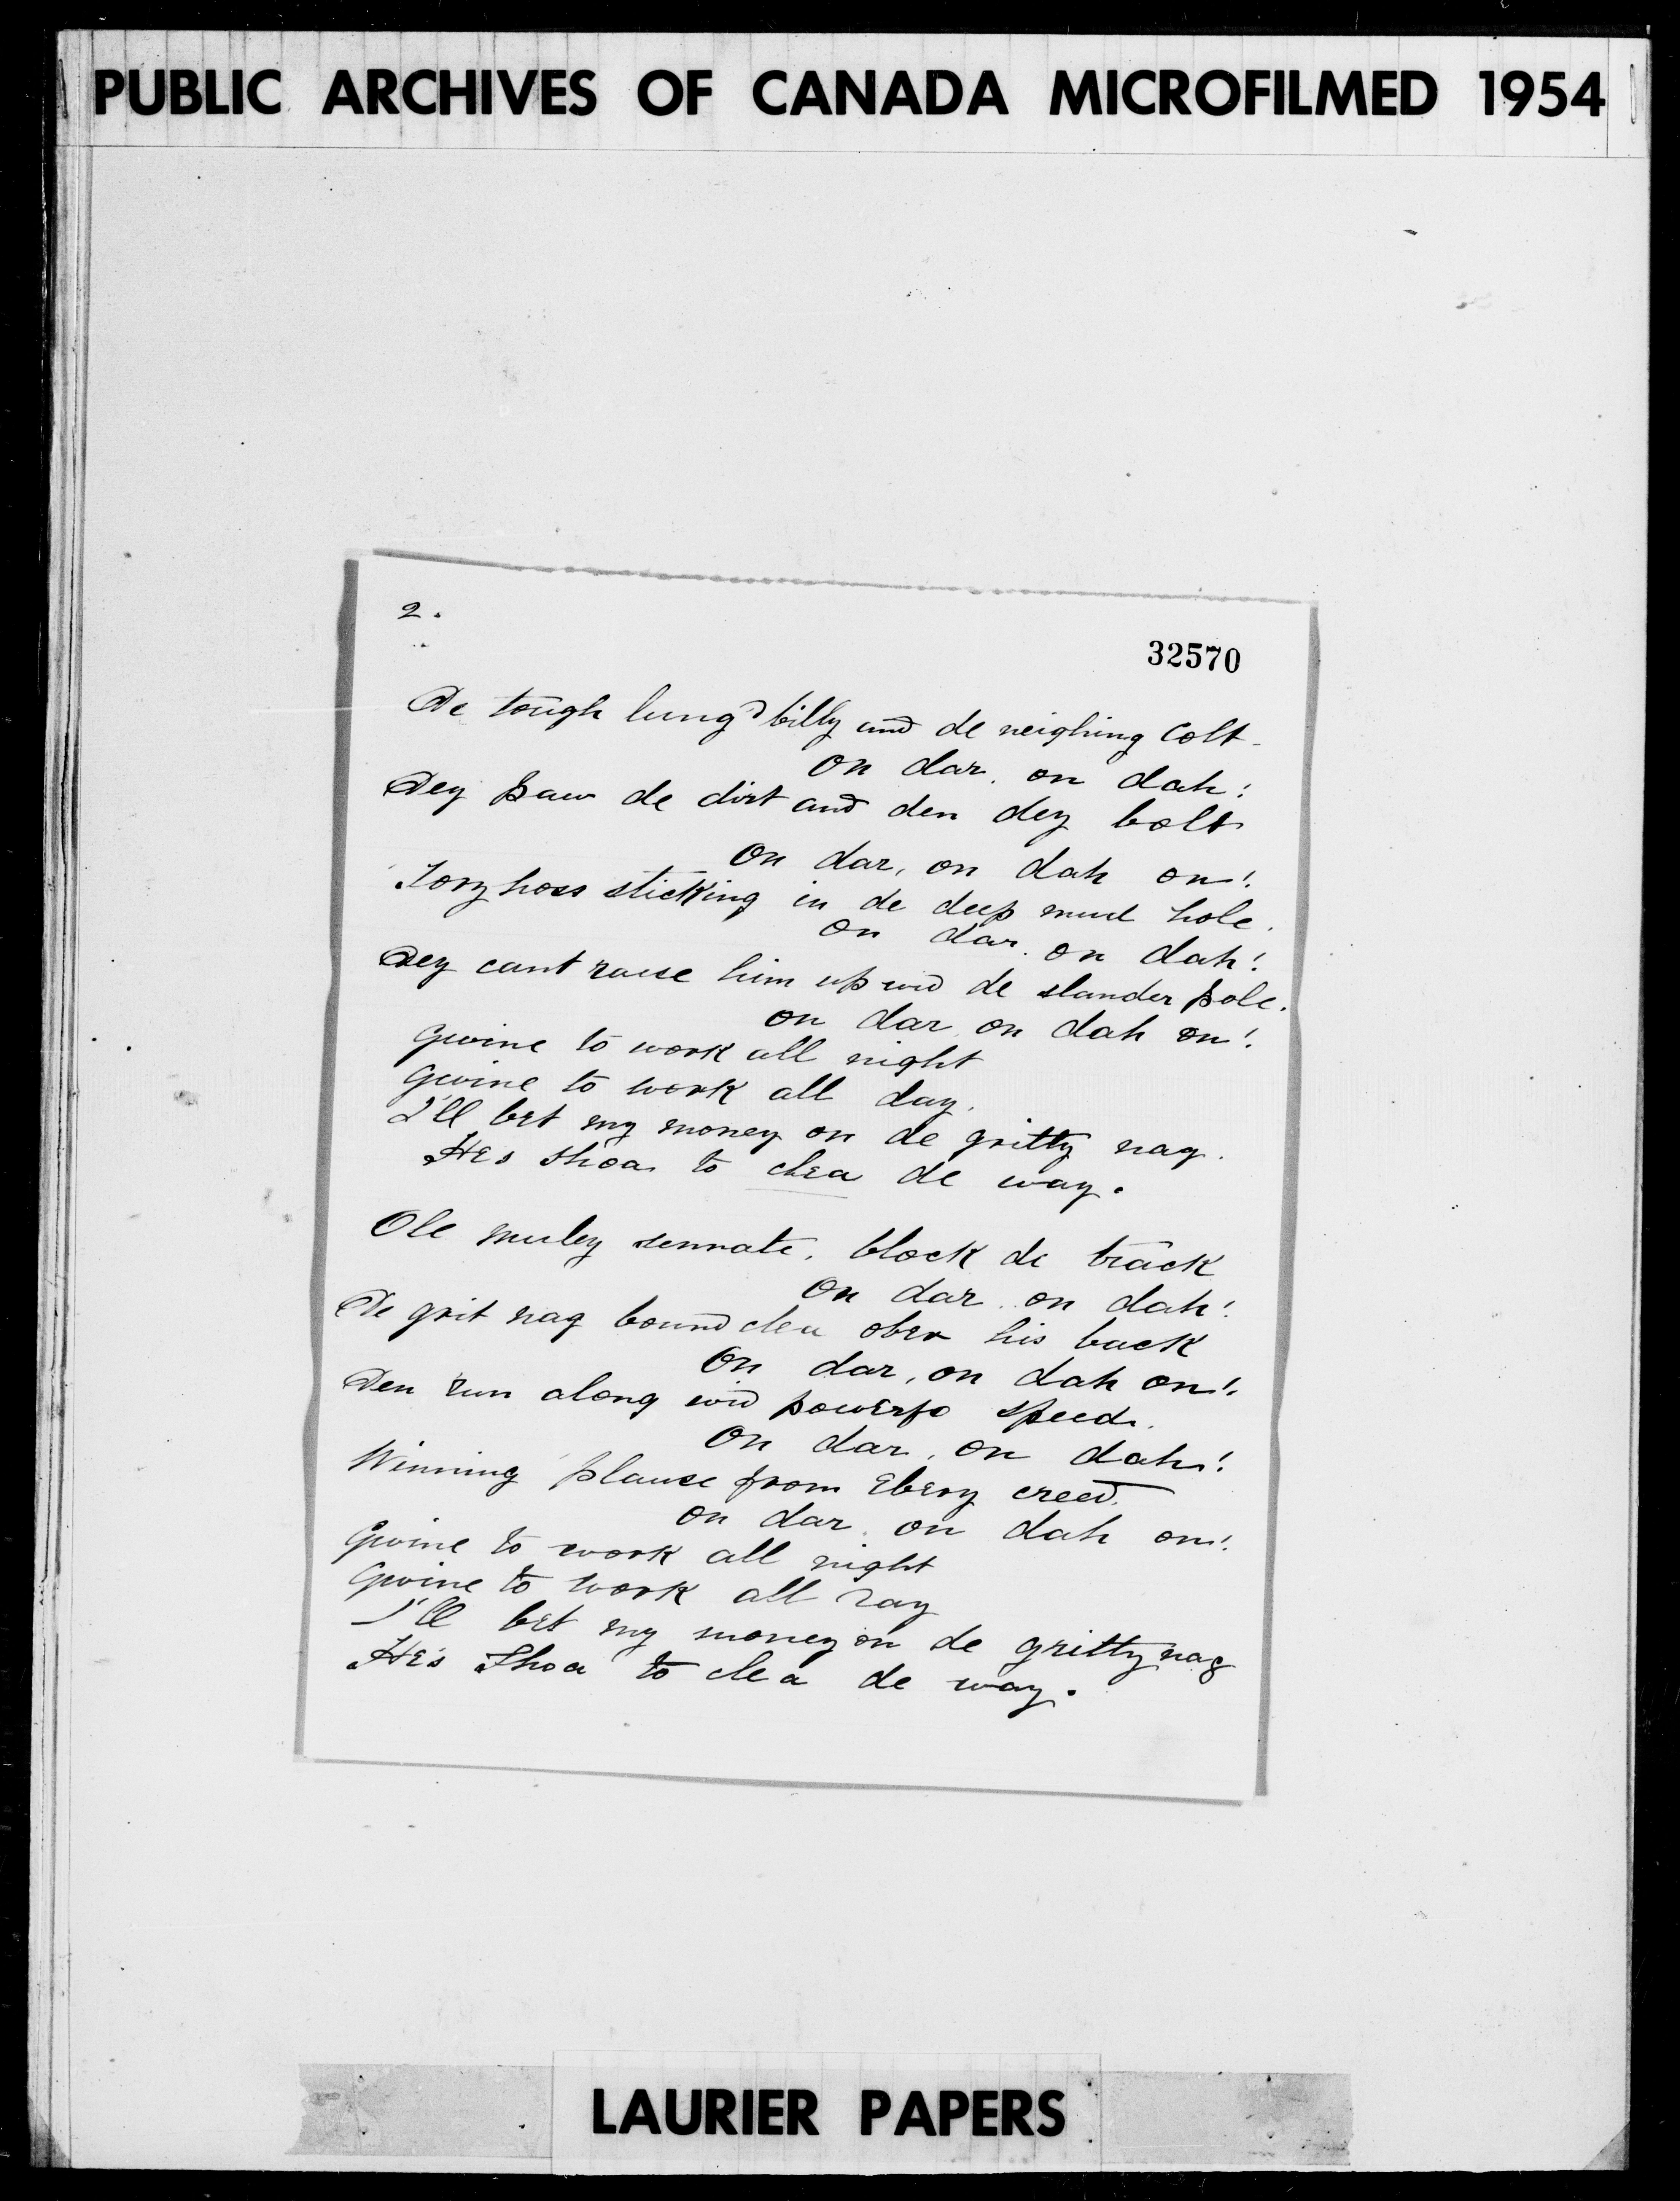 PUBLIC ARCHIVES OF CANADA MICROFILMED 1954
2.
32570
De tough lung'd billy and de neighing Colt
On dar. on dah!
Dey paw de dirt and den dey bolt
On dar, on dah on!
Tory hoss sticking in de deep mud hole.
On dar. on dah!
Dey cant raise him up wid de slander pole.
on dar on dah on!
Gwine to work all night
Gwine to work all day.
I'll bet my money on de gritty nag.
He's shoa to clea de way.
Ole muley sennate, block de track
On dar. on dah!
De grit nag bound clea ober his back
On dar, on dah on!
Den run along wid powerfo speed.
On dar, on dah!
Winning plause from Ebery creed.
on dar. on dah on!
Gwine to work all night
Gwine to work all day
I'll bet my money on de gritty nag
He's Shoa to clea de way.
LAURIER PAPERS